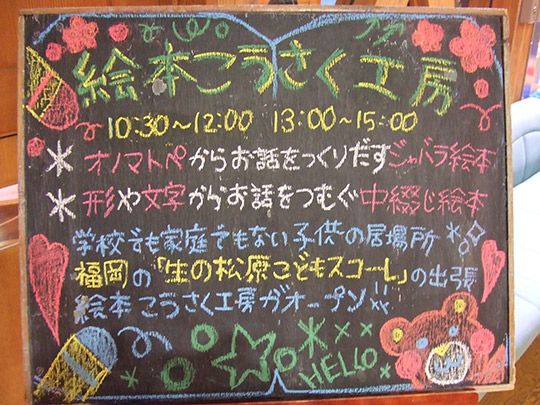 絵本こうさく工房
10:30～12:00 13:00～15:00
* オノマトペからお話をつくりだすジャバラ絵本
* 形や文字からお話をつむぐ中綴じ絵本
学校でも家庭でもない子供の居場所
福岡の「生の松原こどもスコーレ」の出張
絵本こうさく工房がオープン!!
HELLO